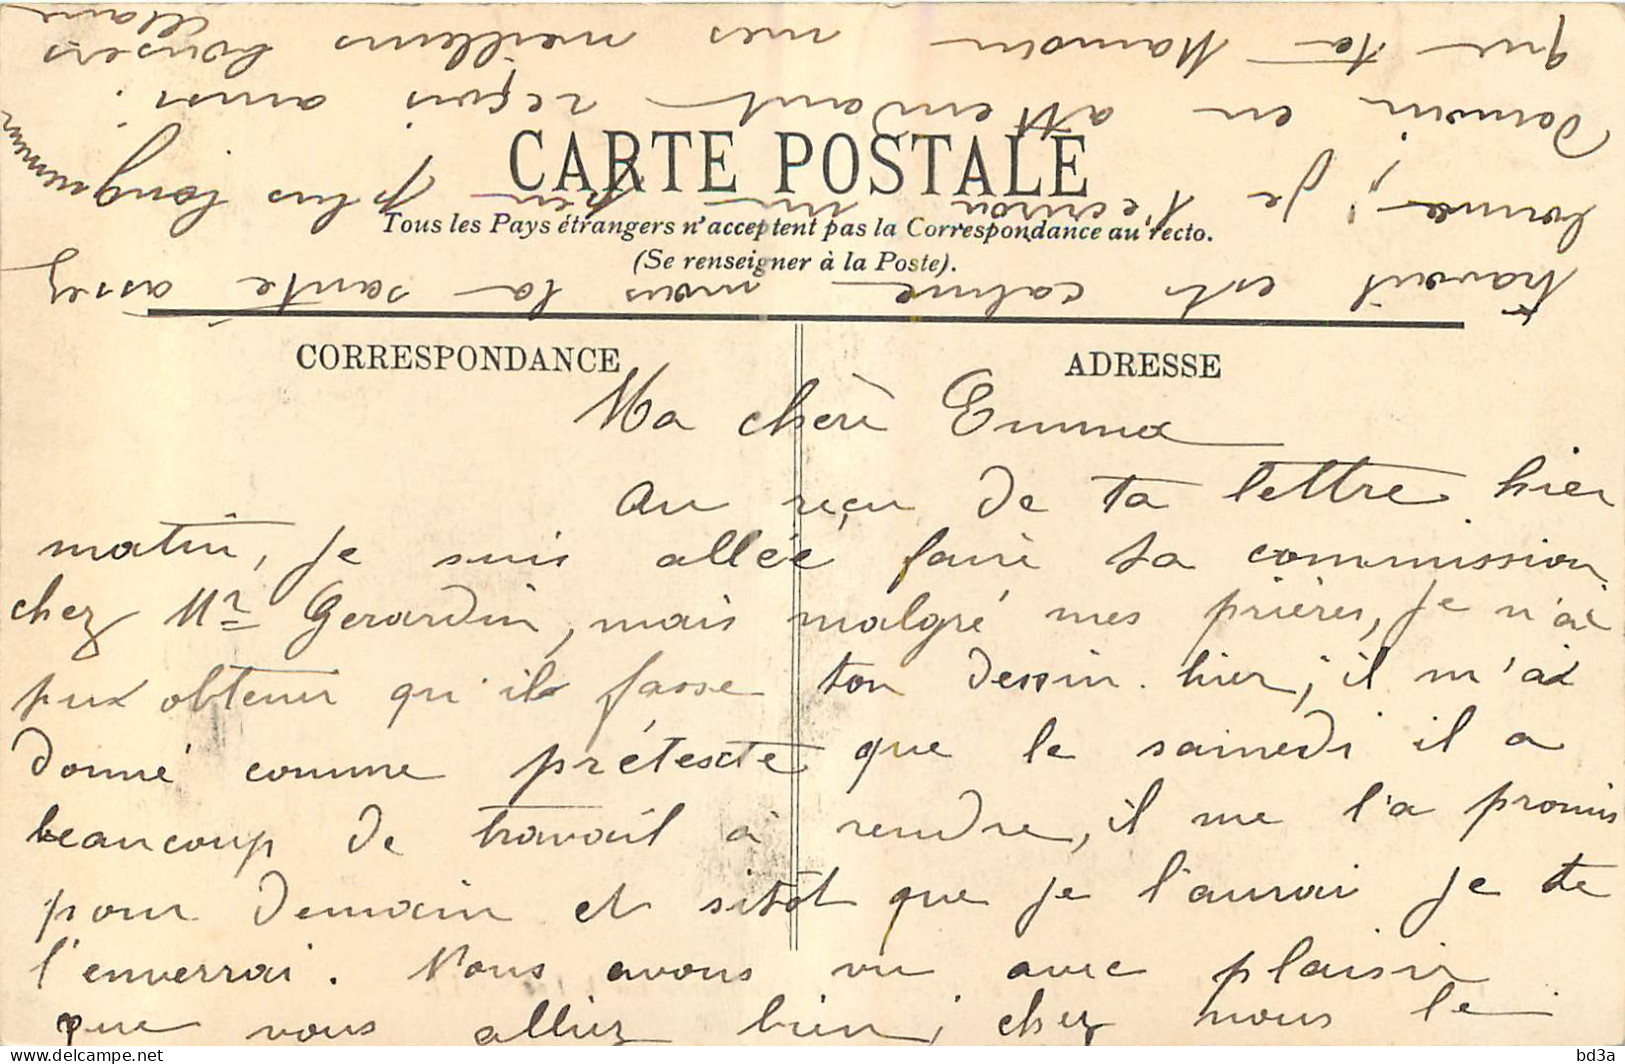 CARTE POSTALE
Tous les Pays étrangers n'acceptent pas la Correspondance au recto.
(Se renseigner à la Poste).
CORRESPONDANCE
ADRESSE
Ma chère Emma
Au reçu de ta lettre hier
matin, je suis allée faire ta commission
chez Mr Gerardin, mais malgré mes prières, je n'ai
pux obtenir qu'il fasse ton dessin hier, il m'a
donné comme prétexte que le samedi il a
beaucoup de travail à rendre, il me l'a promis
pour demain et sitôt que je l'aurai je te
l'enverrai. Nous avons vu avec plaisir
que vous alliez bien, chez nous le
travail est calme mais la santé assez
bonne; je t'écrirai un peu plus longuement
demain en attendant reçois ainsi
que ta Maman mes meilleurs baisers
bd3a